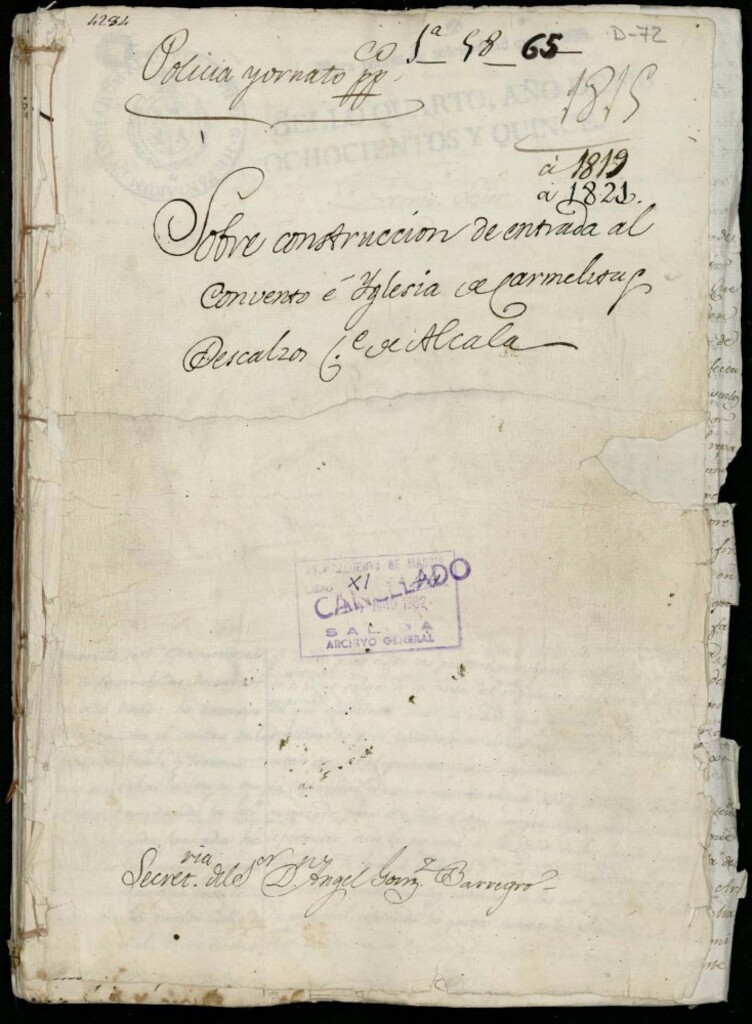 4284
D-72
co 1ª 58 65
Policia y ornato pp.
1815
SELLO QUARTO, AÑO
OCHOCIENTOS Y QUINCE
á 1819
á 1821.
Sobre construccion de entrada al
Convento é Yglesia de Carmelitas
Descalzos C.e de Alcala
AYUNTAMIENTO DE MADRID
XI
CANCELADO
1982
SALIDA
ARCHIVO GENERAL
Secret.ria del S.or D.n Angel Gonz.z Barreyro